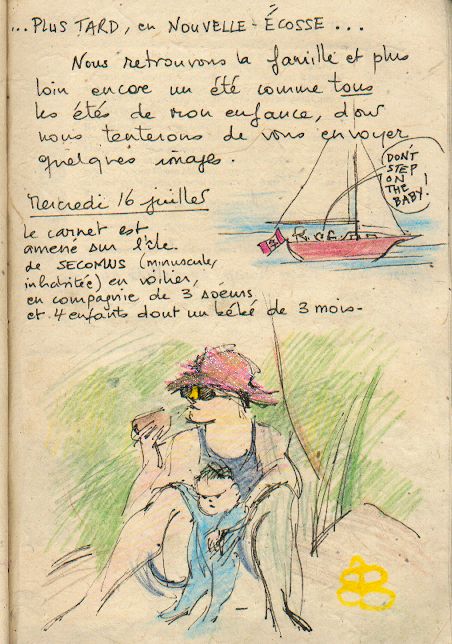 ...PLUS TARD, en NOUVELLE-ÉCOSSE...
Nous retrouvons la famille et plus
loin encore un été comme tous
les étés de mon enfance, dont
nous tenterons de vous envoyer
quelques images.
DON'T
STEP
ON
THE
BABY!
Mercredi 16 juillet
Le carnet est
amené sur l'île
de SECOMUS (minuscule,
inhabitée) en voilier,
en compagnie de 3 soeurs
et 4 enfants dont un bébé de 3 mois-